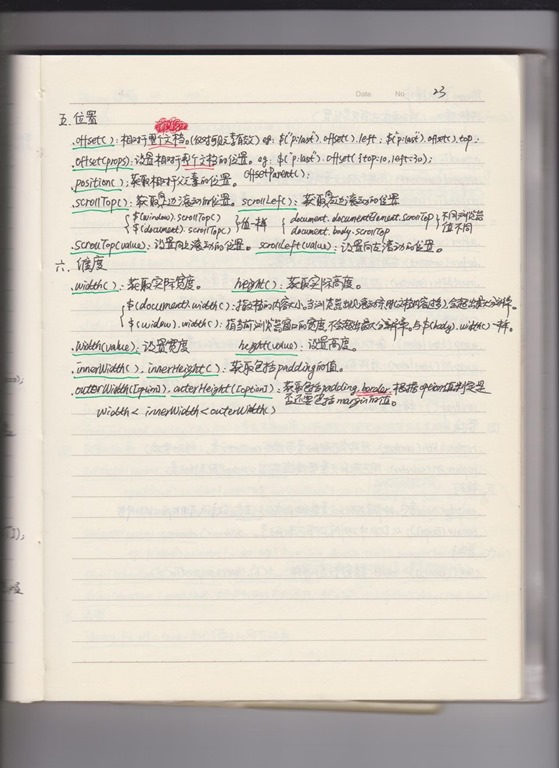 Date No 23
五.位置
.offset(): 相对于整个文档。(仅对可见元素有效) eg: $("p:last").offset().left; $("p:last").offset().top;
.offset(props): 设置相对于整个文档的位置。eg: $("p:last").offset({top:10,left:30});
.position(): 获取相对父元素的位置。 offsetParent():
.scrollTop(): 获取上边滚动的位置 scrollLeft(): 获取左边滚动的位置
{ $(window).scrollTop() } 值一样 { document.documentElement.scrollTop } 不同浏览器
{ $(document).scrollTop() } document.body.scrollTop 值不同
.scrollTop(value): 设置向上滚动的位置。 scrollLeft(value): 设置向左滚动的位置。
六. 维度
.width(): 获取实际宽度。 height(): 获取实际高度。
{ $(document).width(): 指文档的内容大小。当浏览器出现滚动条时(文档内容过多)会超出最大分辨率。
$(window).width(): 指当前浏览器窗口的宽度,不会超出最大分辨率。与$(body).width()一样。
.width(value): 设置宽度 height(value): 设置高度。
.innerWidth(). innerHeight(): 获取包括padding的值。
.outerWidth([option]). outerHeight([option]): 获取包括padding.border.根据option值判定是
否还要包括margin的值。
width< innerWidth<outerWidth>